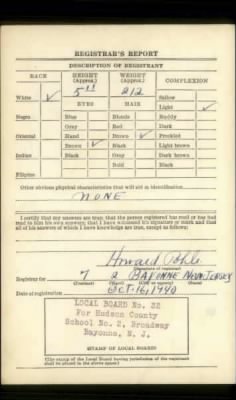 REGISTRAR'S REPORT
DESCRIPTION OF REGISTRANT
RACE HEIGHT (Approx.) WEIGHT (Approx.) COMPLEXION
White ✓ 5'11 212 Sallow
EYES HAIR Light ✓
Negro Blue Blonde Ruddy
Gray Red Dark
Oriental Hazel Brown ✓ Freckled
Brown ✓ Black Light brown
Indian Black Gray Dark brown
Bald Black
Filipino
Other obvious physical characteristics that will aid in identification
NONE
I certify that my answers are true; that the person registered has read or has had
read to him his own answers; that I have witnessed his signature or mark and that
all of his answers of which I have knowledge are true, except as follows:
Howard
(Signature of registrar)
Registrar for 7 2 BAYONNE NEW JERSEY
(Precinct) (Ward) (City or county) (State)
Date of registration OCT. 16, 1940
LOCAL BOARD No. 32
For Hudson County
School No. 2, Broadway
Bayonne, N. J.
STAMP OF LOCAL BOARD
(The stamp of the Local Board having jurisdiction of the registrant
shall be placed in the above space.)